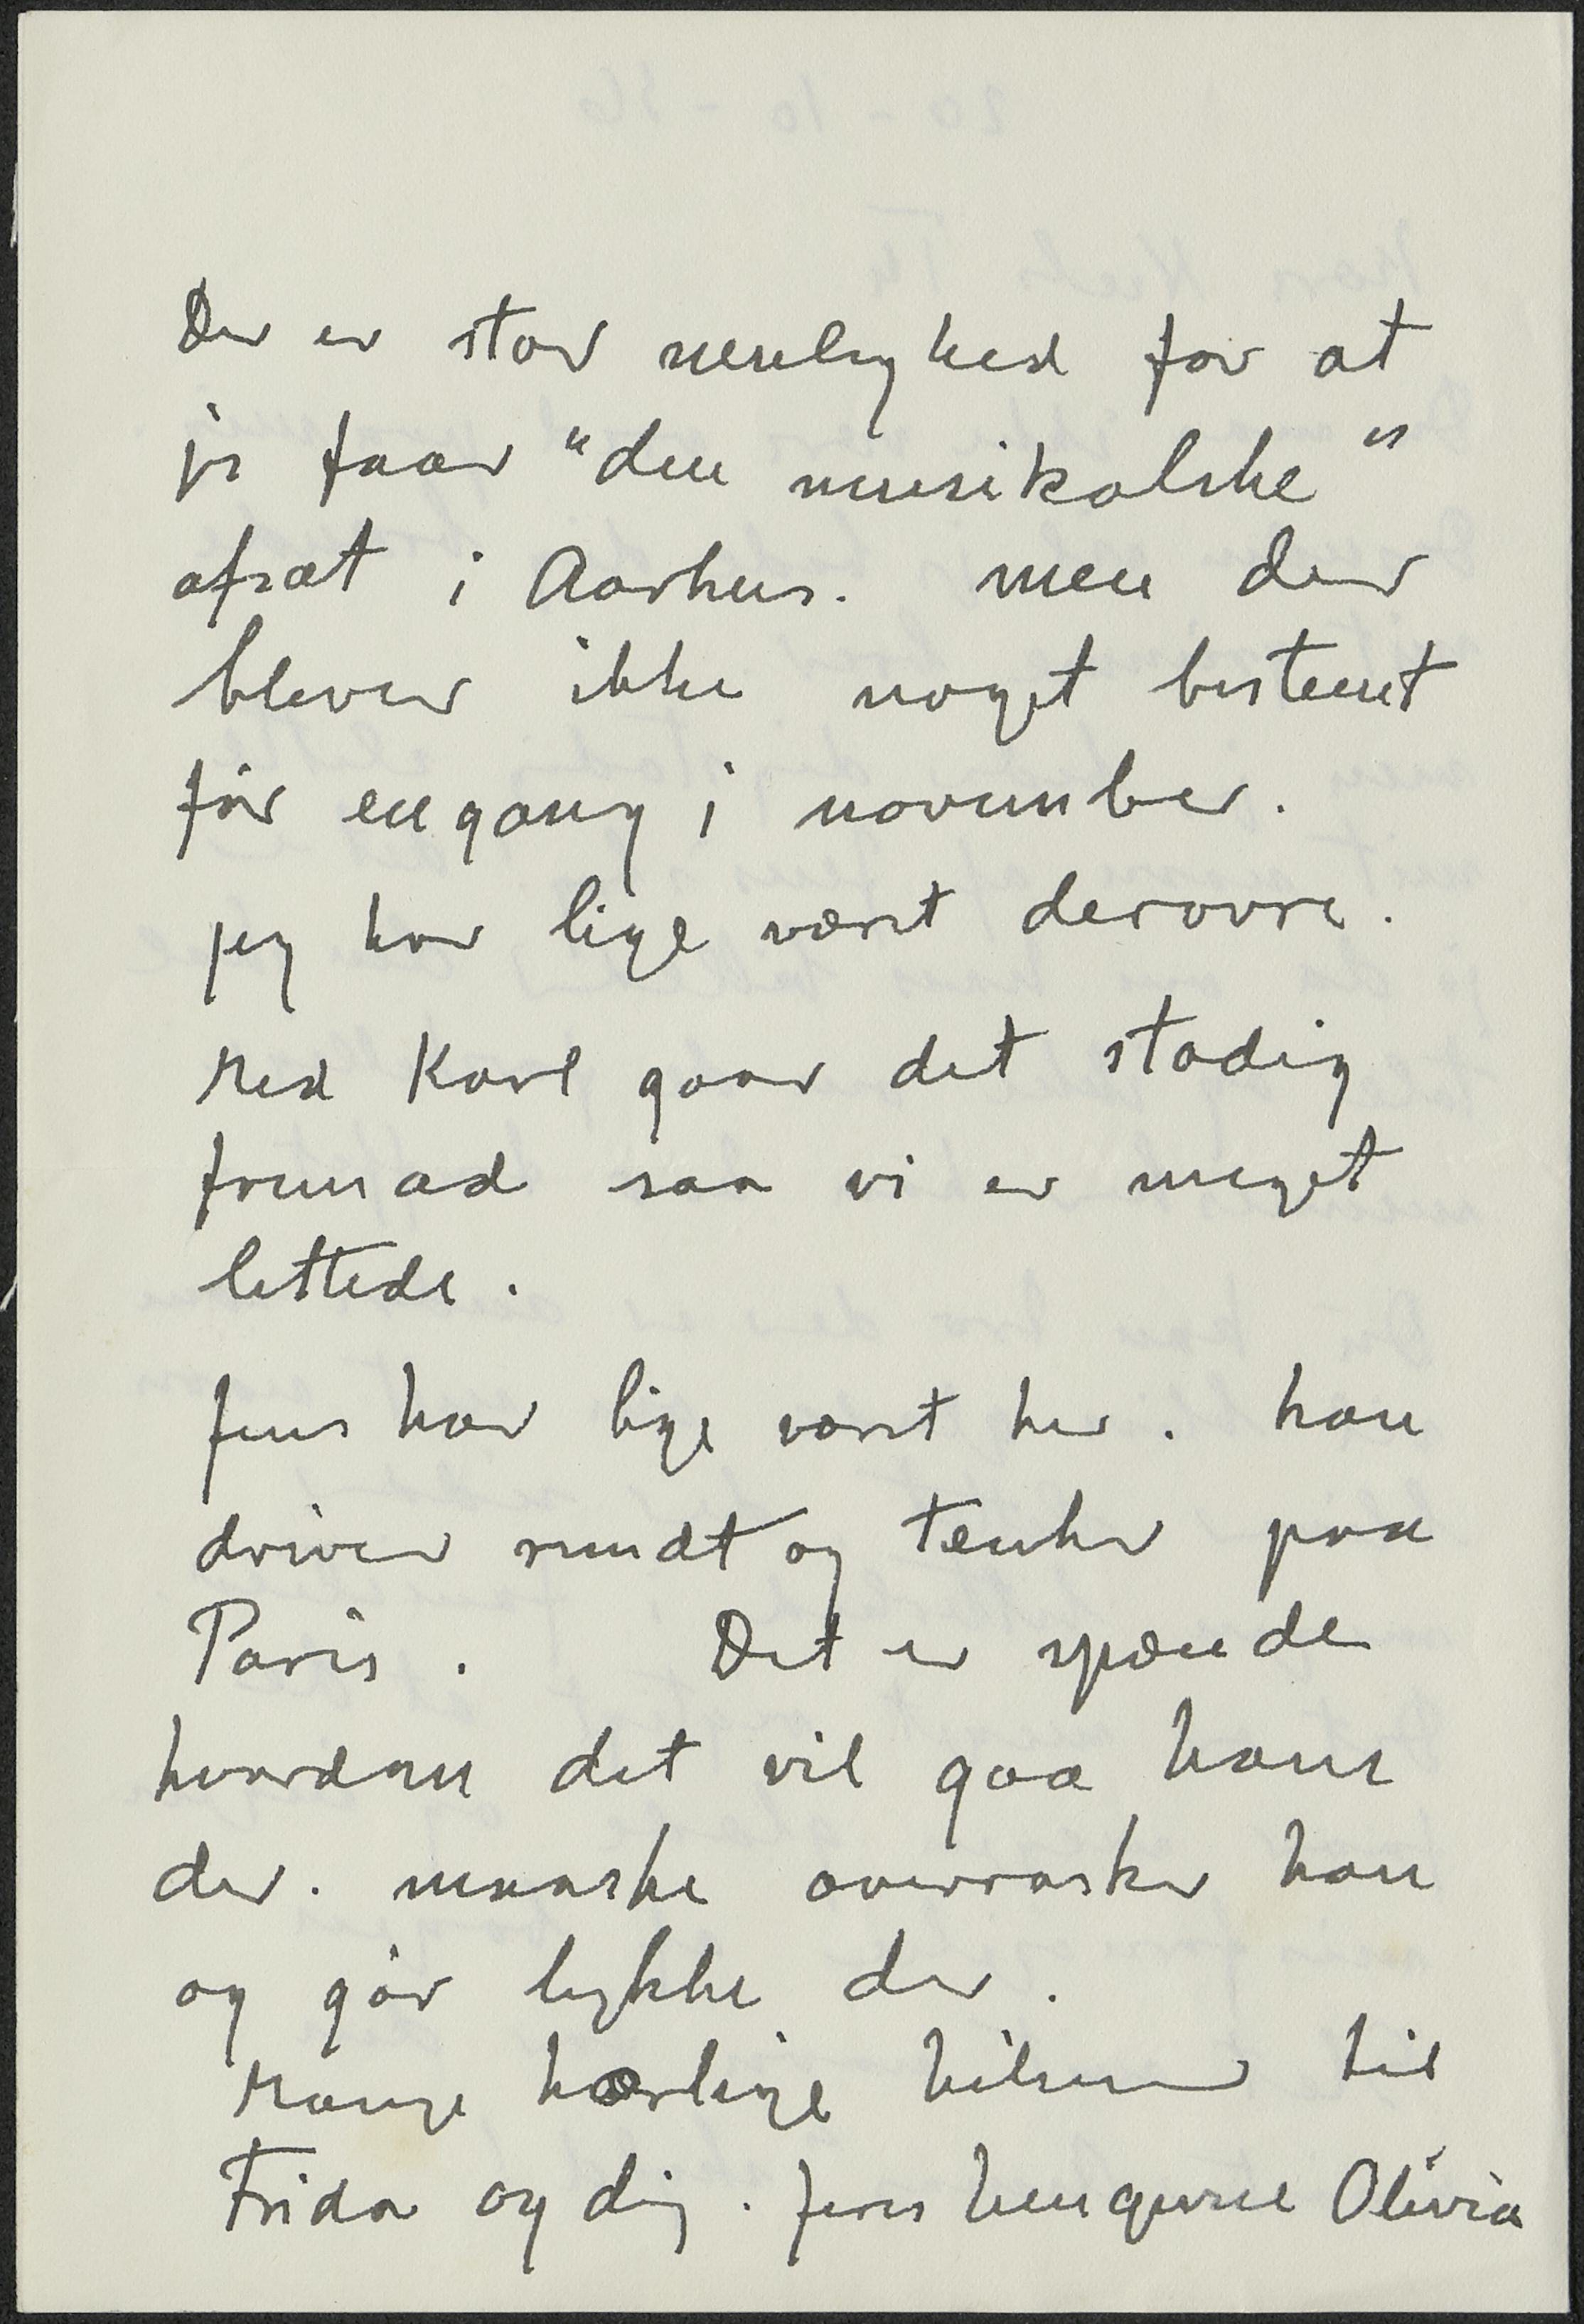 Der er stor menlighed for at
jeg faar "den musikalske"
afsat i Aarhus. men der
bliver ikke noget bestemt
før engang i november.
jeg har lige været derovre.
Med Karl gaar det stadig
fremad saa vi er meget
lettede.
Jens har lige været her. han
driver rundt og tenker paa
Paris. Det er spænde
hvordan det vil gaa ham
der. maaske overrasker han
og gør lykke der.
Mange kærlige hilsner til
Frida og dig. Jeres hengivne Olivia